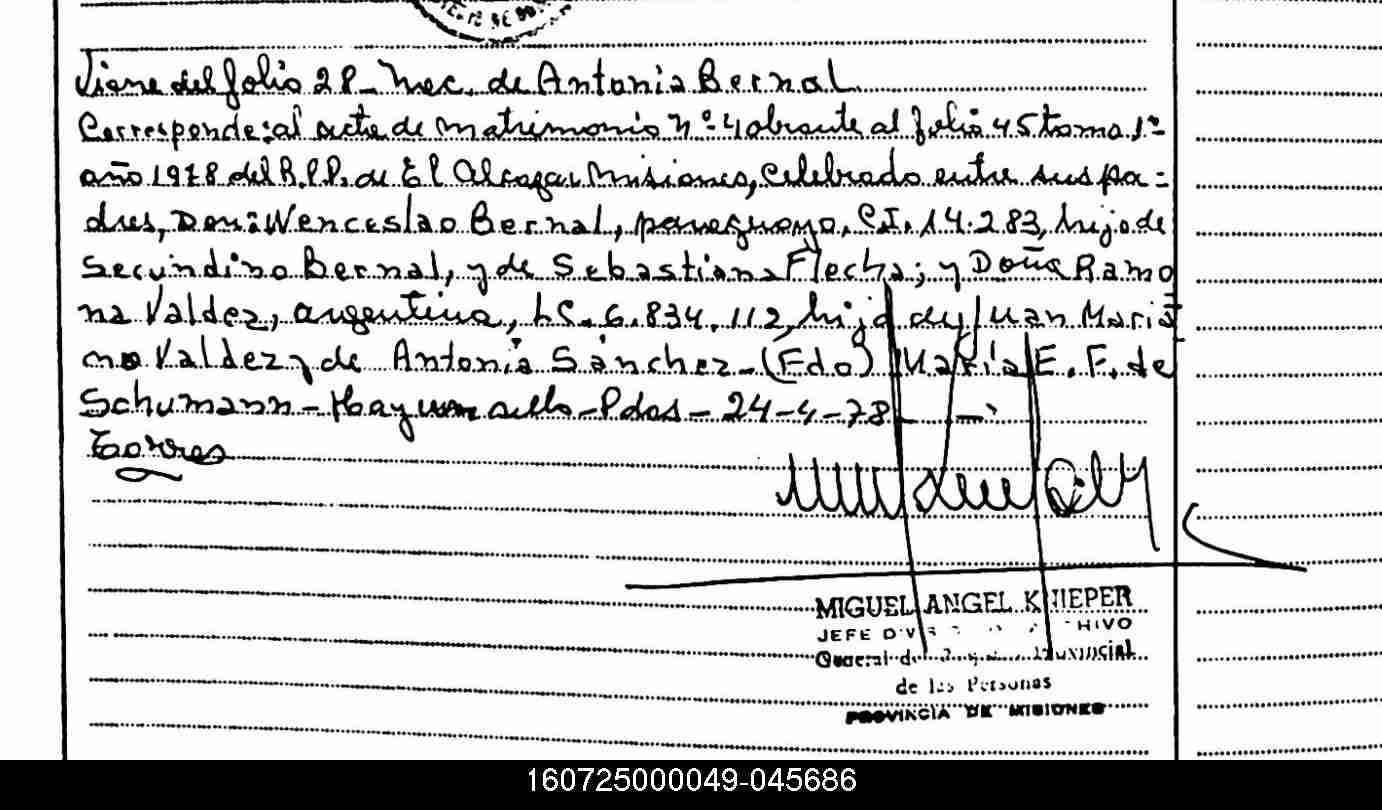 Viene del folio 28 - Nac. de Antonia Bernal
Corresponde: al acta de matrimonio nº 4 obrante al folio 45 tomo 1º
año 1978 del R.P.P. de El Alcazar Misiones, celebrado entre sus pa=
dres, Don: Wenceslao Bernal, paraguayo, C.I. 14.283, hijo de
Secundino Bernal, y de Sebastiana Flecha; y Doña Ramo
na Valdez, argentina, LC. 6.834.112, hija de Juan Maria
no Valdez y de Antonia Sánchez - (Fdo) María E. F. de
Schumann - Hay un sello - Pdas - 24-4-78 - -
Torres
MIGUEL ANGEL KNIEPER
JEFE ARCHIVO
General del Provincial
de las Personas
PROVINCIA DE MISIONES
160725000049-045686